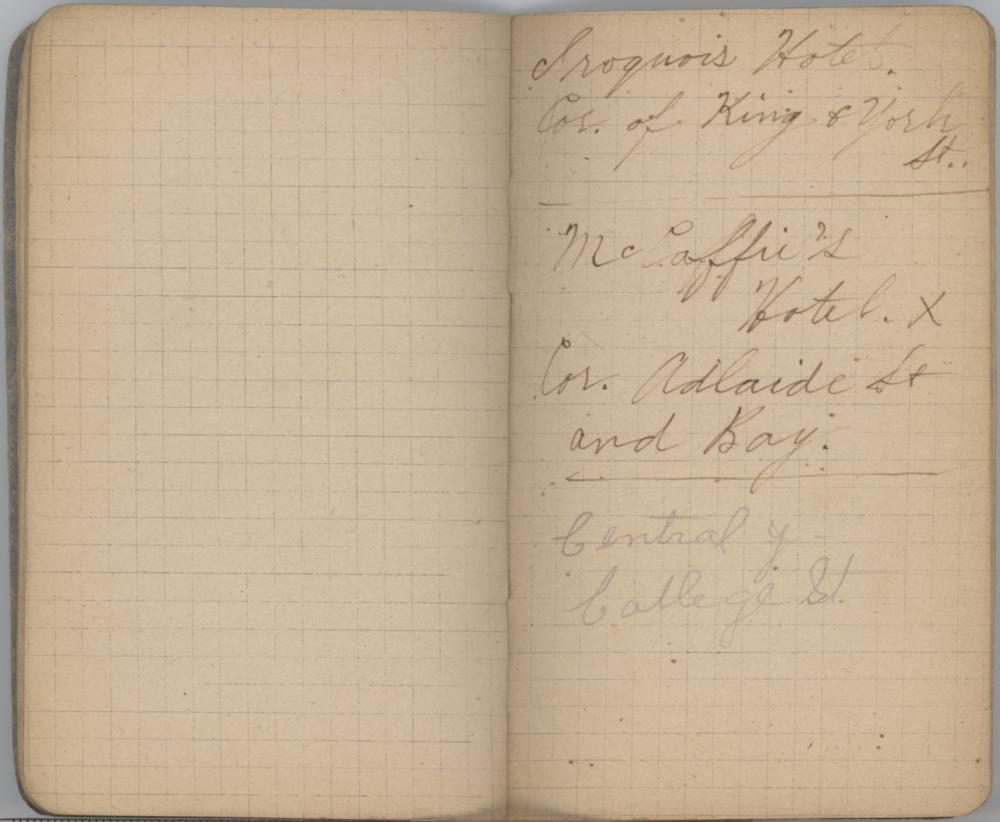 Iroquois Hotel.
Cor. of King & York
St..
McCaffie's
Hotel. X
Cor. Adlaide St
and Bay.
Central Y
College St.